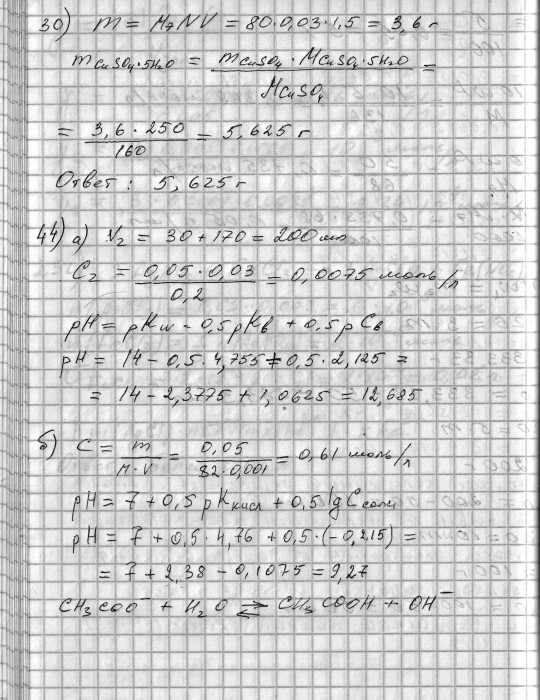 30) m = MэNV = 80·0,03·1,5 = 3,6 г
m CuSO₄·5H₂O = mCuSO₄ · MCuSO₄·5H₂O / MCuSO₄ =
= 3,6 · 250 / 160 = 5,625 г
Ответ: 5,625 г
44) а) V₂ = 30 + 170 = 200 мл
C₂ = 0,05·0,03 / 0,2 = 0,0075 моль/л
pH = pKw - 0,5pKв + 0,5pCв
pH = 14 - 0,5·4,755 + 0,5·2,125 =
= 14 - 2,3775 + 1,0625 = 12,685
б) C = m / M·V = 0,05 / 82·0,001 = 0,61 моль/л
pH = 7 + 0,5 pKкисл + 0,5 lgCсоли
pH = 7 + 0,5·4,76 + 0,5·(-0,215) =
= 7 + 2,38 - 0,1075 = 9,27
CH₃COO⁻ + H₂O ⇄ CH₃COOH + OH⁻